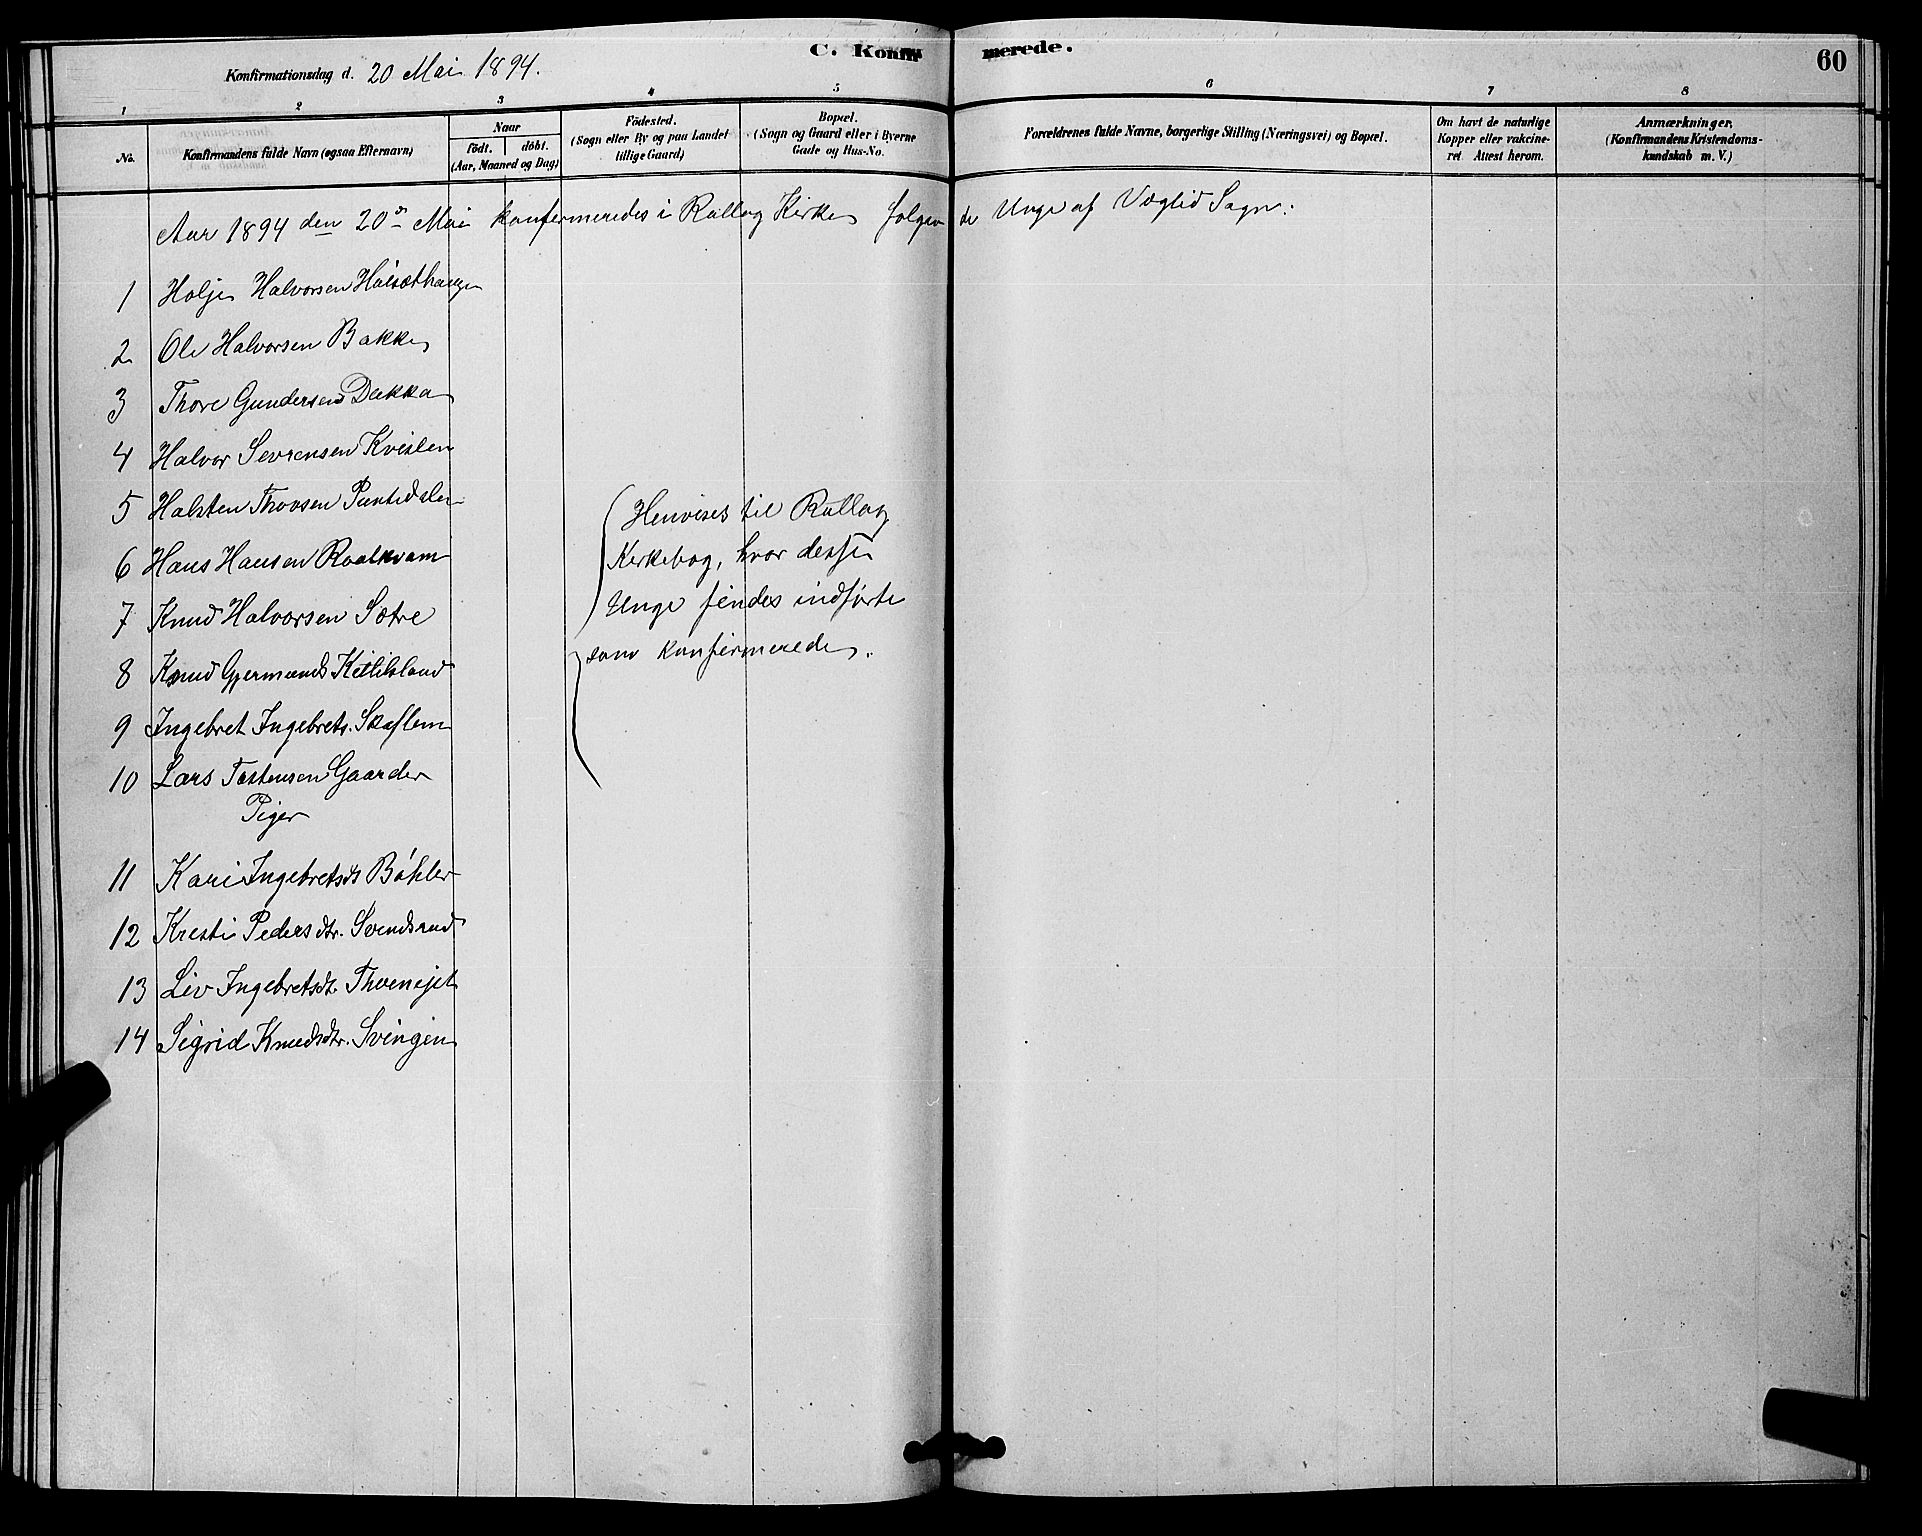 C. Konfirmerede.
60
Konfirmationsdag d. 20 Mai 1894.
1 2 3 4 5 6 7 8
No.
Konfirmandens fulde Navn (ogsaa Efternavn)
Naar
födt. döbt.
(Aar, Maaned og Dag)
Födested.
(Sogn eller By og paa Landet
tillige Gaard)
Bopæl.
(Sogn og Gaard eller i Byerne
Gade og Hus-No.
Forældrenes fulde Navne, borgerlige Stilling (Næringsvei) og Bopæl.
Om havt de naturlige
Kopper eller vakcine-
ret Attest herom.
Anmærkninger,
(Konfirmandens Kristendoms-
kundskab m. V.)
Aar 1894 den 20de Mai konfirmeredes i Rollag Kirke følgende Unge af Veglid Sogn:
1 Holje Halvorsen
2 Ole Halvorsen Bakke
3 Thore Gundersen Dakka
4 Halvor Sevrensen Kvislen
5 Halsten Thovsen
6 Hans Hansen Raalkvam
7 Knud Halvorsen Sætre
8 Knud Gjermunds Ketilsland
9 Ingebret Ingebrets. Skaflem
10 Lars Tostensen Gaarder
Piger
11 Kari Ingebretsdt Böhler
12 Kristi Pedersdtr. Svendsrud
13 Liv Ingebretsdt.
14 Sigrid Knudsdtr. Svingen
Henvises til Rollag
Kirkebog, hvor disse
Unge findes indførte
som konfirmerede.